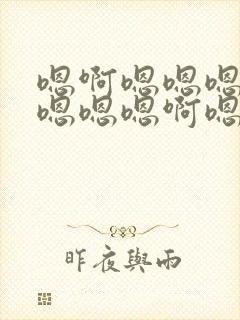 嗯啊嗯嗯嗯
嗯嗯嗯啊嗯
昨夜与雨